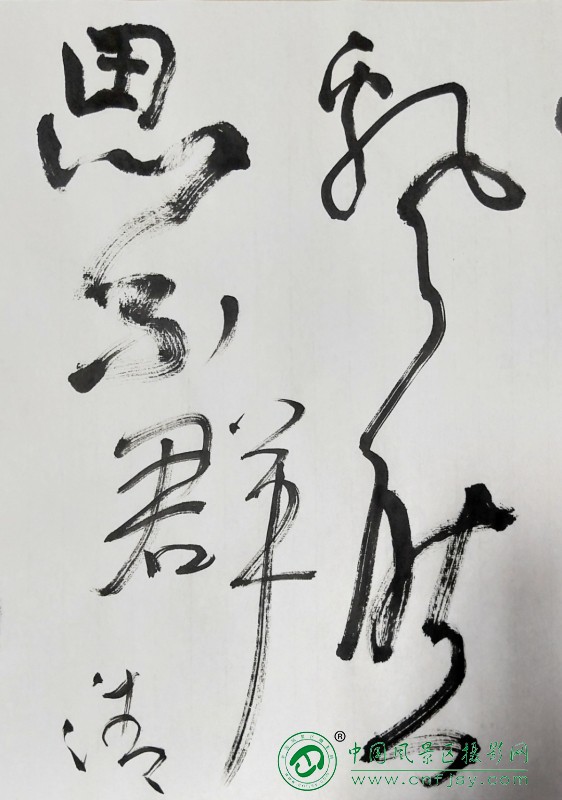 飘然
思不群
清
®
中国风景区摄影网
www.cnfjsy.com